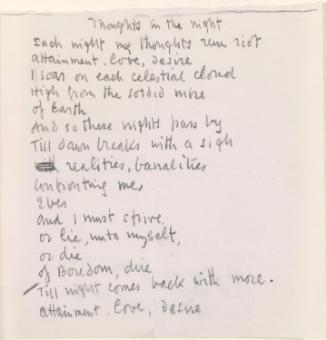 Thoughts in the night
Each night my thoughts run riot
attainment. love, desire
I soar on each celestial cloud
High from the sordid more
of Earth
And so these nights pass by
Till dawn breaks with a sigh
realities, banalities
confronting me,
Ever
and I must strive,
or lie, unto myself,
or die
of Boredom, dire
Till night comes back with more.
attainment. love, desire